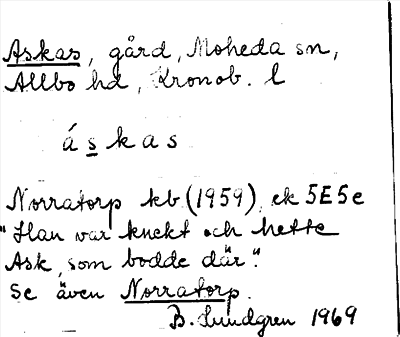 Askas, gård, Moheda sn,
Allbo hd, Kronob. l
áskas
Norratorp kb (1959), ek 5E5e
"Han var knekt och hette
Ask, som bodde där".
Se även Norratorp.
B. Lundgren 1969